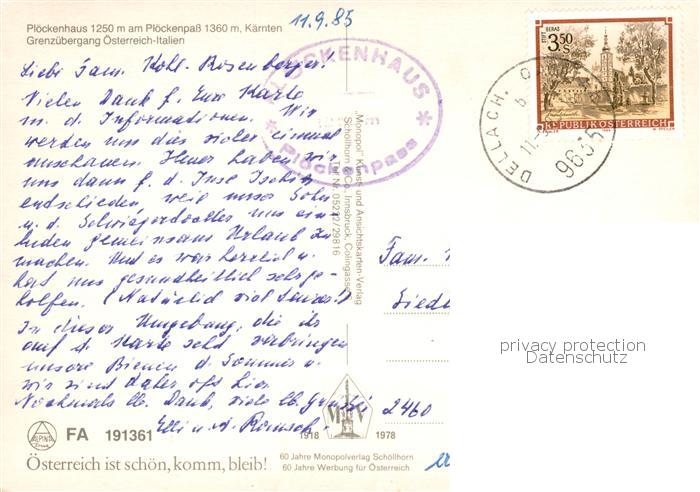 Plöckenhaus 1250 m am Plöckenpaß 1360 m, Kärnten
Grenzübergang Österreich-Italien
11.9.85
Liebe Fam. Kohl-Rosenberger!
Vielen Dank f. Eure Karte
m. d. Informationen. Wir
werden uns das sicher einmal
anschauen. Heuer haben wir
uns dann f. d. Insel Ischia
entschieden, weil unser Sohn
u. d. Schwiegertochter uns ein
luden gemeinsam Urlaub zu
machen. Und es war herrlich u.
hat uns gesundheitlich sehr ge-
holfen. (Natürlich viel
In dieser Umgebung, die ihr
auf d. Karte seht verbringen
unsere Bienen d. Sommer u.
wir sind daher oft hier.
Nochmals lb. Dank, viele lb. Grüße
Elli u.
PLÖCKENHAUS
Plöckenpass
"Monopol" Kunst- und Ansichtskarten-Verlag
Schöllhorn & Co. Innsbruck, Colingasse
Tel. Nr. 05222/29816
STIFT GERAS
3.50 S
REPUBLIK ÖSTERREICH
DELLACH,
9635
Fam.
Siedl
2460
privacy protection
Datenschutz
ALPINA
FA 191361
1918 1978
Österreich ist schön, komm, bleib!
60 Jahre Monopolverlag Schöllhorn
60 Jahre Werbung für Österreich